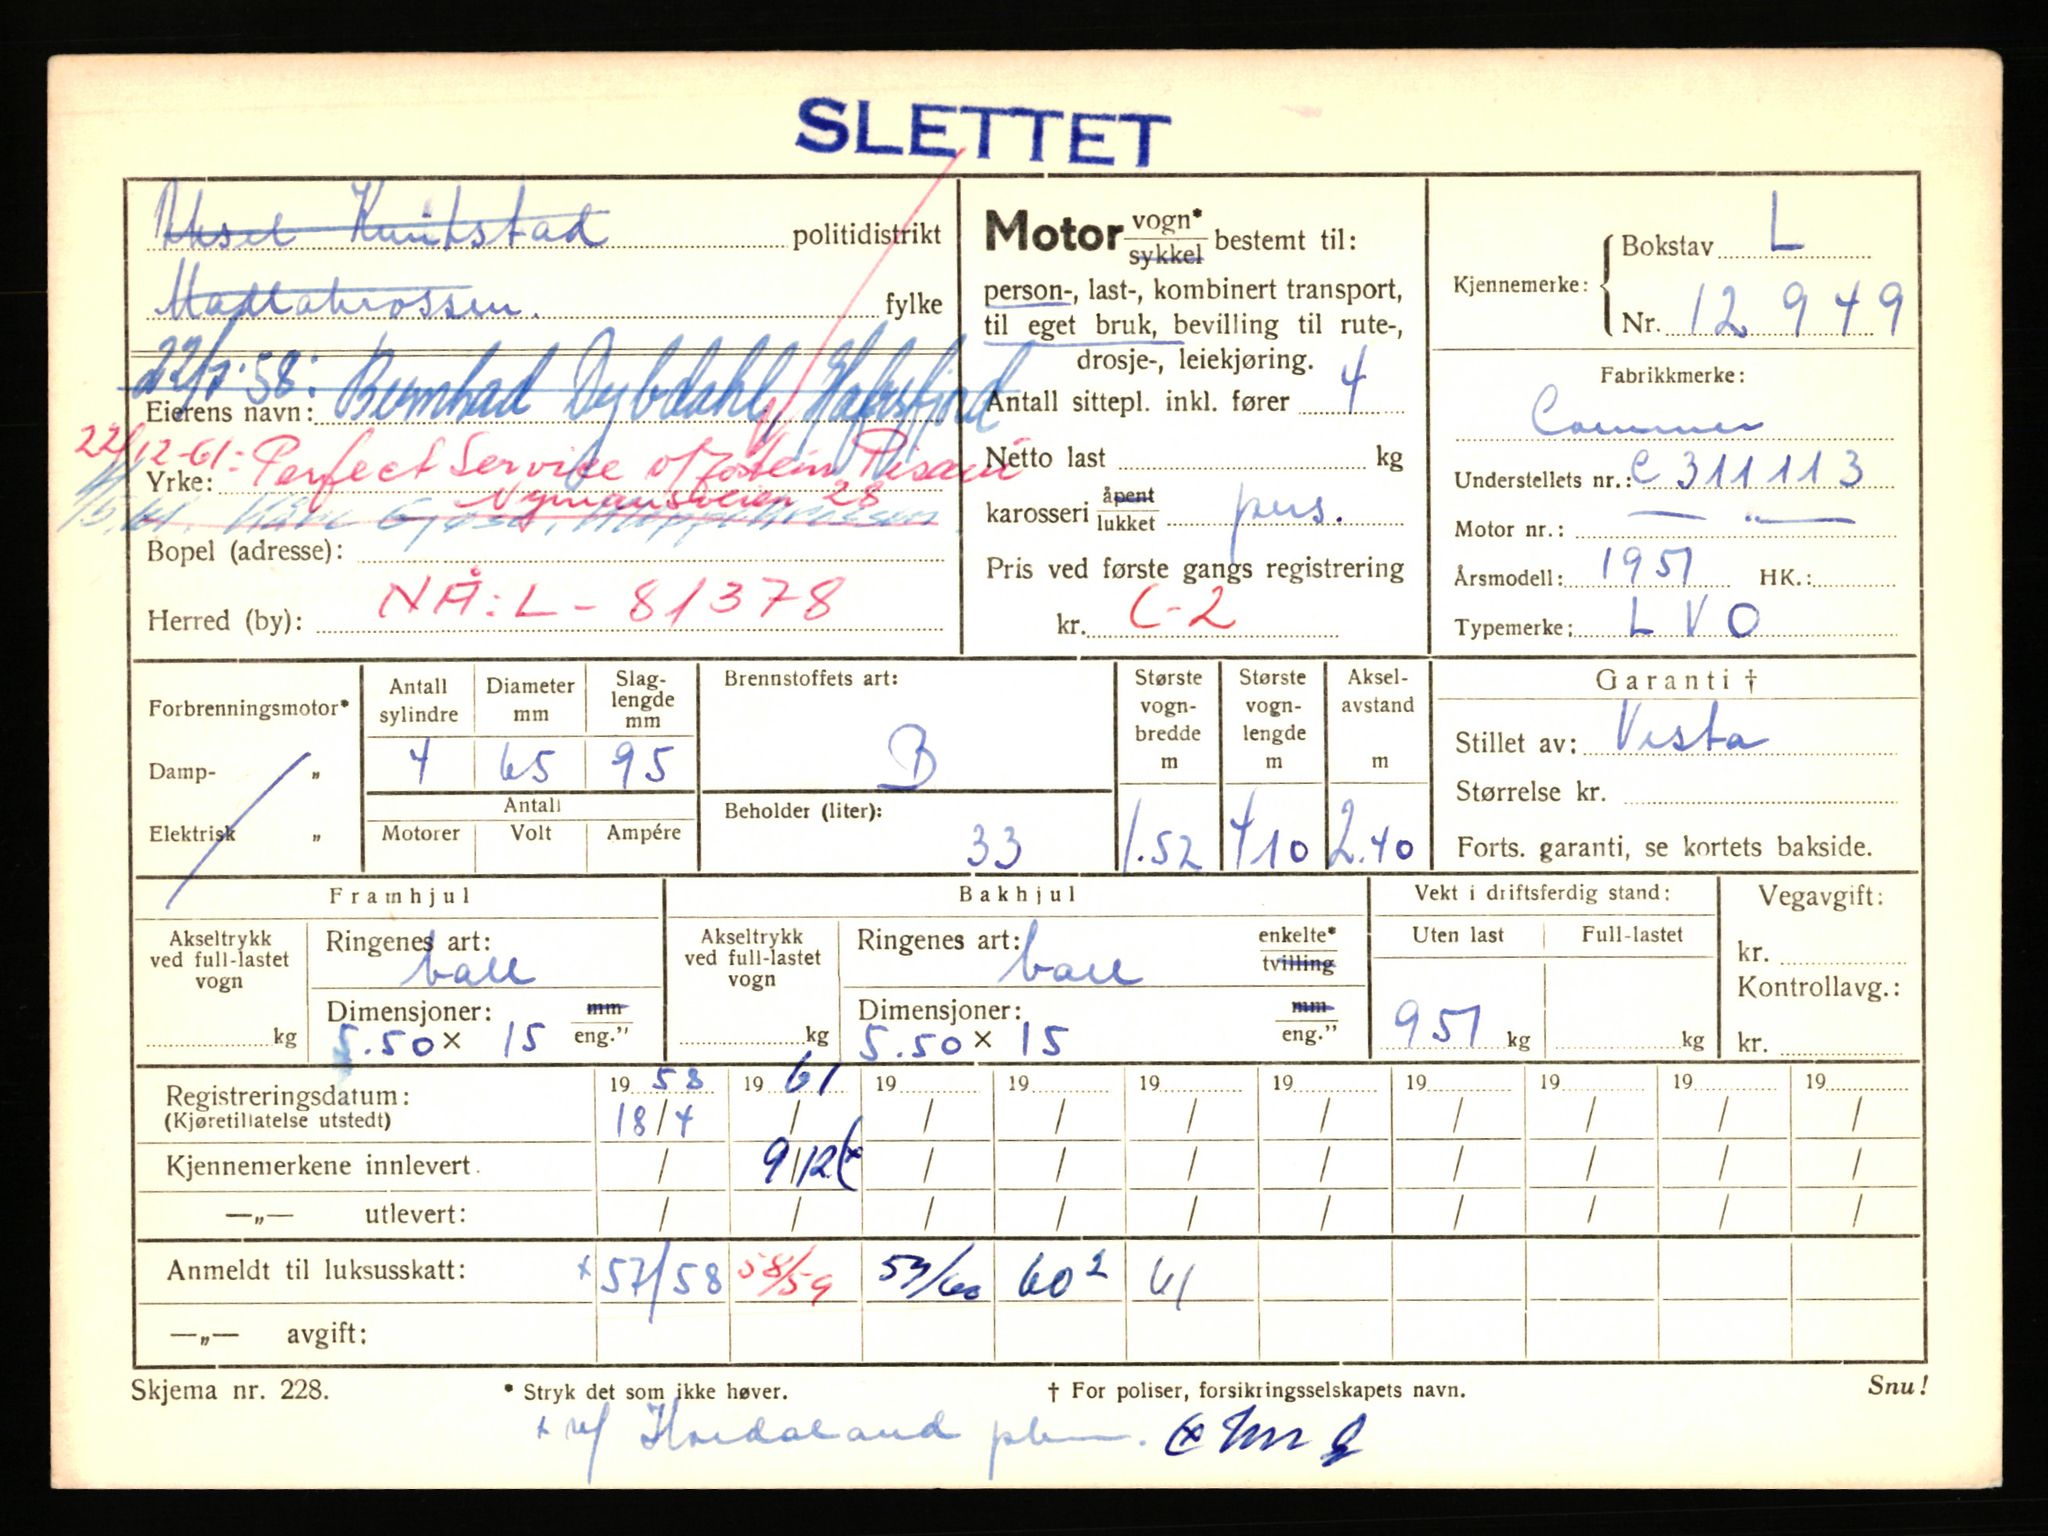 SLETTET
Aksel politidistrikt
fylke
Motor vogn* / sykkel bestemt til:
person-, last-, kombinert transport,
til eget bruk, bevilling til rute-,
drosje-, leiekjøring.
Antall sittepl. inkl. fører 4
Netto last kg
karosseri åpent / lukket pers.
Pris ved første gangs registrering
kr. C-2
Kjennemerke: Bokstav L
Nr. 12 949
Fabrikkmerke:
Commer
Understellets nr.: C 311113
Motor nr.: — „ —
Årsmodell: 1951 HK.:
Typemerke: L V O
22/7-58: Dybdahl, Hafrsfjord
Eierens navn:
22/12-61: Perfect Service v/ Jostein
Yrke: Nymansveien 28
Bopel (adresse):
Herred (by): NÅ: L - 81378
Forbrenningsmotor*
Damp- „
Elektrisk „
Antall sylindre 4
Diameter mm 65
Slag-lengde mm 95
Antall
Motorer Volt Ampére
Brennstoffets art: B
Beholder (liter): 33
Største vogn-bredde m 1.52
Største vogn-lengde m 410
Aksel-avstand m 2.40
Garanti †
Stillet av: Vesta
Størrelse kr.
Forts. garanti, se kortets bakside.
Framhjul
Akseltrykk ved full-lastet vogn kg
Ringenes art: ball
Dimensjoner: mm
5.50 × 15 eng.”
Bakhjul
Akseltrykk ved full-lastet vogn kg
Ringenes art: ball enkelte* / tvilling
Dimensjoner: mm
5.50 × 15 eng.”
Vekt i driftsferdig stand:
Uten last Full-lastet
951 kg kg
Vegavgift:
kr.
Kontrollavg.:
kr.
19 58 19 61 19 19 19 19 19 19 19 19
Registreringsdatum: 18/4 / / / / / / / / /
(Kjøretillatelse utstedt)
Kjennemerkene innlevert / 9/12 (x / / / / / / / /
—„— utlevert: / / / / / / / / / /
Anmeldt til luksusskatt: x 57/58 58/59 59/60 60² 61
—„— avgift:
Skjema nr. 228. * Stryk det som ikke høver. † For poliser, forsikringsselskapets navn. Snu!
x v/ Hordaland